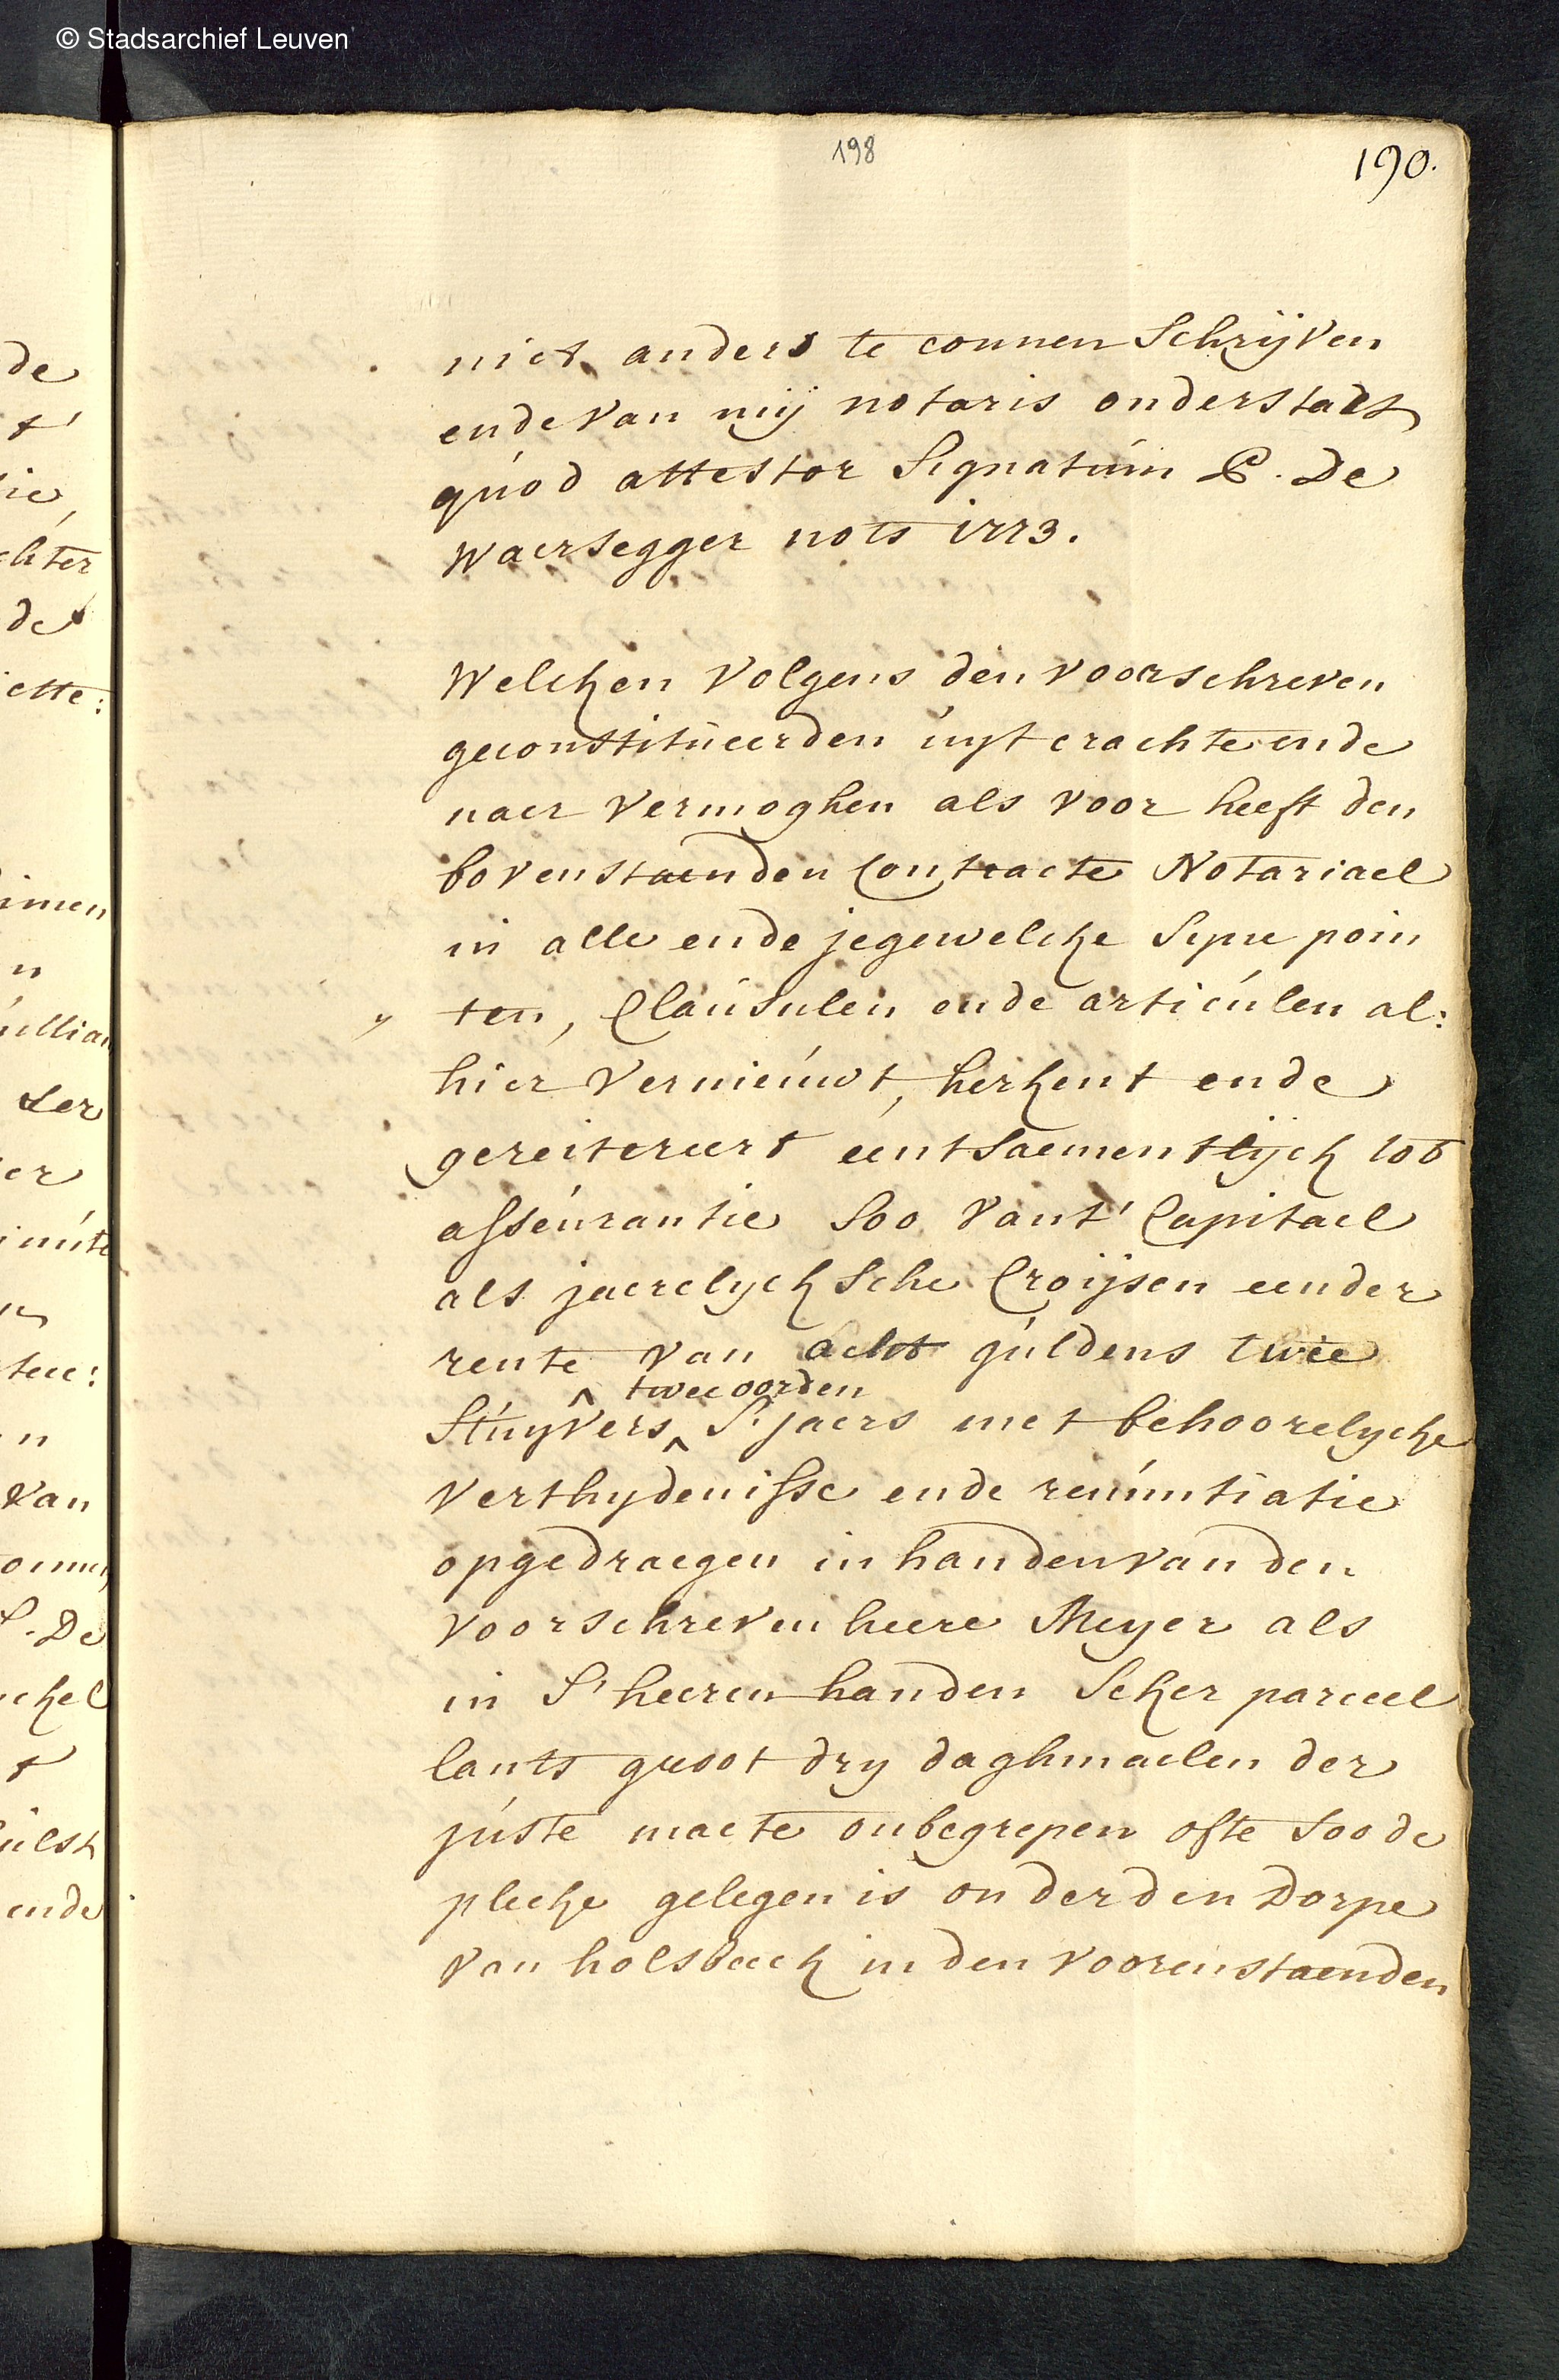 © Stadsarchief Leuven
198
190.
niet anders te connen schrijven
ende van mij notaris onderstaet
quod attestor signatum P. De
Waersegger nots 1773.
Welcken volgens den voorschreven
geconstitueerden uyt crachte ende
naer vermoghen als voor heeft den
bovenstaenden Contracte Notariael
in alle ende jegewelcke syne poin
ten, Clausulen ende articulen al:
hier vernieuwt, herkent ende
gereitereert eentsaementlijck tot
asseurantie soo vant' Capitael
als jaerelycksche Croijsen eender
rente van acht guldens twee
twee oorden
Stuyvers s'jaers met behoorelycke
verthydenisse ende renuntiatie
opgedraegen in handen van den
voorschreven heere Meyer als
in S'heeren handen seker parceel
lants groot dry daghmaelen der
juste maete onbegrepen ofte soo de
plecke gelegen is onder den Dorpe
van holsbeeck in den voorenstaenden
de
t'
tie
chter
de
ette:
imen
n
ullian
der
er
inute
tee:
n
van
P. De
ckel
t
ulst
ende